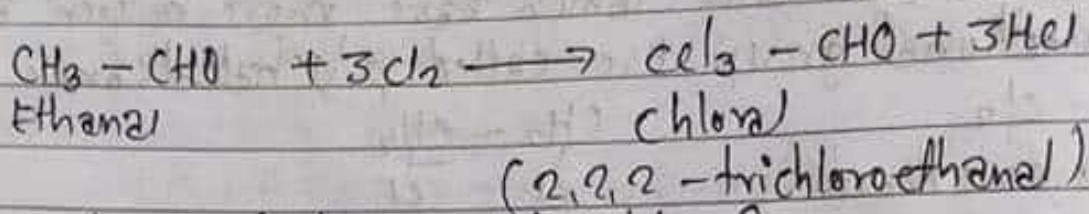 CH3 - CHO + 3Cl2 ⟶ CCl3 - CHO + 3HCl
Ethanal chloral
(2,2,2 - trichloroethanal)